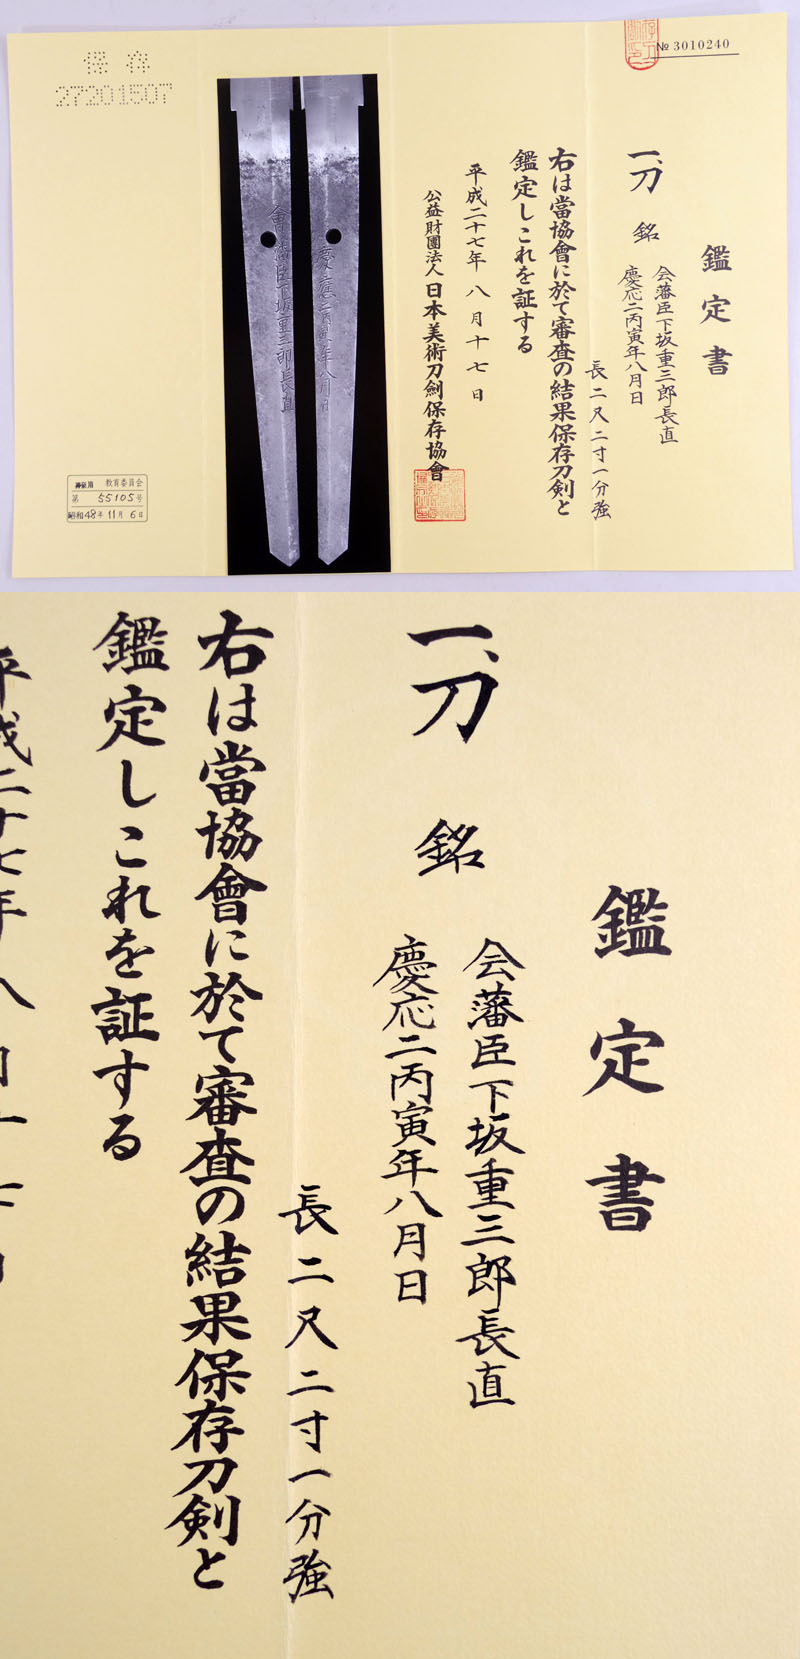 № 3010240
鑑定書
一、刀 銘 会藩臣下坂重三郎長直
慶応二丙寅年八月日
長二尺二寸一分強
右は當協會に於て審査の結果保存刀剣と
鑑定しこれを証する
平成二十七年八月十七日
公益財團法人日本美術刀劍保存協會
保存
27201507
會藩臣下坂重三郎長直
慶應二丙寅年八月日
神奈川 教育委員会
第 55105号
昭和48年11月6日
鑑定書
一、刀 銘 会藩臣下坂重三郎長直
慶応二丙寅年八月日
長二尺二寸一分強
右は當協會に於て審査の結果保存刀剣と
鑑定しこれを証する
平成二十七年八月十七日